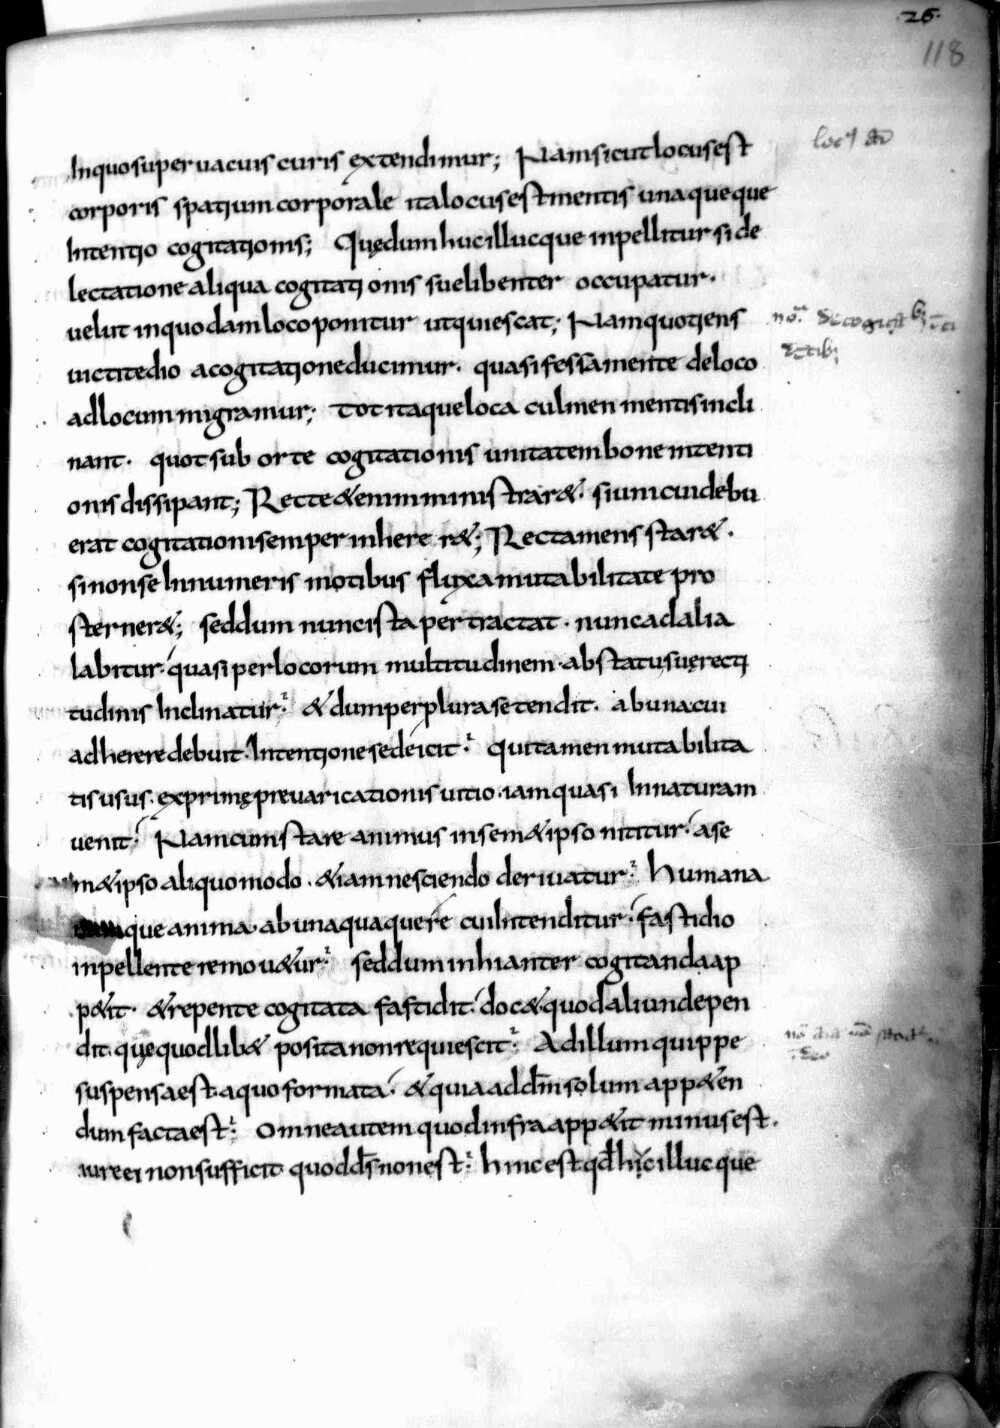 .26.
118
Inquo supervacuis curis extendimur; Nam sicut locus est
corporis spatium corporale ita locus est mentis una queque
Intentio cogitationis; Quędum huc illucque inpellitur si de
lectatione aliqua cogitationis sue libenter occupatur.
velut inquodam loco ponitur ut quiescat; Nam quotiens
victi tedio a cogitatione ducimur. quasi fessa mente de loco
ad locum migramur; Tot itaque loca culmen mentis incli
nant. quot sub orte cogitationis unitatem bone intenti
onis dissipant; Recte & enim ministrar&. si uni cui debu
erat cogitationi semper inhere r&; Recta mens star&.
si non se Innumeris motibus fluxa mutabilitate pro
sterner&; sed dum nunc ista pertractat. nunc ad alia
labitur. quasi per locorum multitudinem. ab status suę recti
tudinis Inclinatur. & dum per plura se tendit. ab una cui
adherere debuit. Intentione se deicit. Qui tamen mutabilita
tis usus. ex primę prevaricationis vitio. iam quasi In naturam
venit. Nam cum stare animus in sem&ipso nititur. a se
m&ipso aliquo modo. &iam nesciendo derivatur. Humana
que anima. ab una quaque re cui Intenditur. fastidio
inpellente remov&ur. sed dum inhianter cogitanda ap
p&it. & repente cogitata fastidit. doc& quod aliunde pen
dit. quę quodlib& posita non requiescit. Ad illum quippe
suspensa est. a quo formata. & quia ad dm̅ solum app&en
dum facta est. Omne autem quod infra app&it minus est.
iure ei non sufficit quod ds̅ non est. hinc est qđ hic illucque